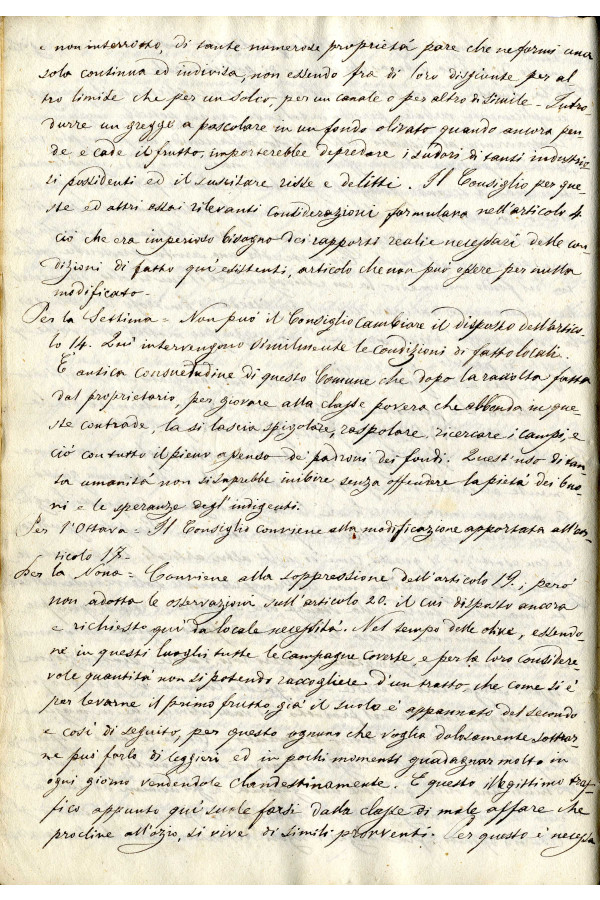 e non interrotto, di tante numerose proprietá pare che ne formi una
sola continua ed indivisa, non essendo fra di loro disgiunte per al
tro limite che per un solco, per un canale o per altro di simile - Intro-
durre un gregge a pascolare in un fondo olivato quando ancora pen-
de e cade il frutto, importerebbe depredare i sudori di tanti industrio-
si possidenti ed il suscitare risse e delitti. Il Consiglio per que-
ste ed altri assai rilevanti considerazioni formulava nell'articolo 4.
ció che era imperioso bisogno dei rapporti reali e necessari delle con-
dizioni di fatto quí esistenti, articolo che non puó essere per nulla
modificato -
Per la Settima = Non puó il Consiglio cambiare il disposto dell'artico-
lo 14. Quí intervengono similmente le condizioni di fatto locali.
E' antica consuetudine di questo Comune che dopo la raccolta fatta
dal proprietario, per giovare alla classe povera che abbonda in que
ste contrade, la si lascia spigolare, raspolare, ricercare i campi, e
ció con tutto il pieno assenso de' padroni dei fondi. Quest'uso di tan-
ta umanitá non si saprebbe inibire senza offendere la pietá dei buo-
ni e le speranze degl'indigenti.
Per l'Ottava = Il Consiglio conviene alla modificazione apportata all'ar-
ticolo 17 -
Per la Nona = Conviene alla soppressione dell'articolo 19., peró
non adotta le osservazioni sull'articolo 20. il cui disposto ancora
e richiesto quí da locale necessitá. Nel tempo delle olive, essendo-
ne in questi luoghi tutte le campagne coverte, e per la loro considere-
vole quantitá non si potendo raccogliere d'un tratto, che come si é
per levarne il primo frutto, giá il suolo é appannato del secondo
e cosí di seguito, per questo ognuno che voglia dolosamente sottrar-
ne puó farlo di leggieri ed in pochi momenti guadagnar molto in
ogni giorno vendendole clandestinamente. E questo illegittimo traf-
fico appunto quí suole farsi dalla classe di male affare che
procline all'ozio, si vive di simili provventi. Per questo é necessa